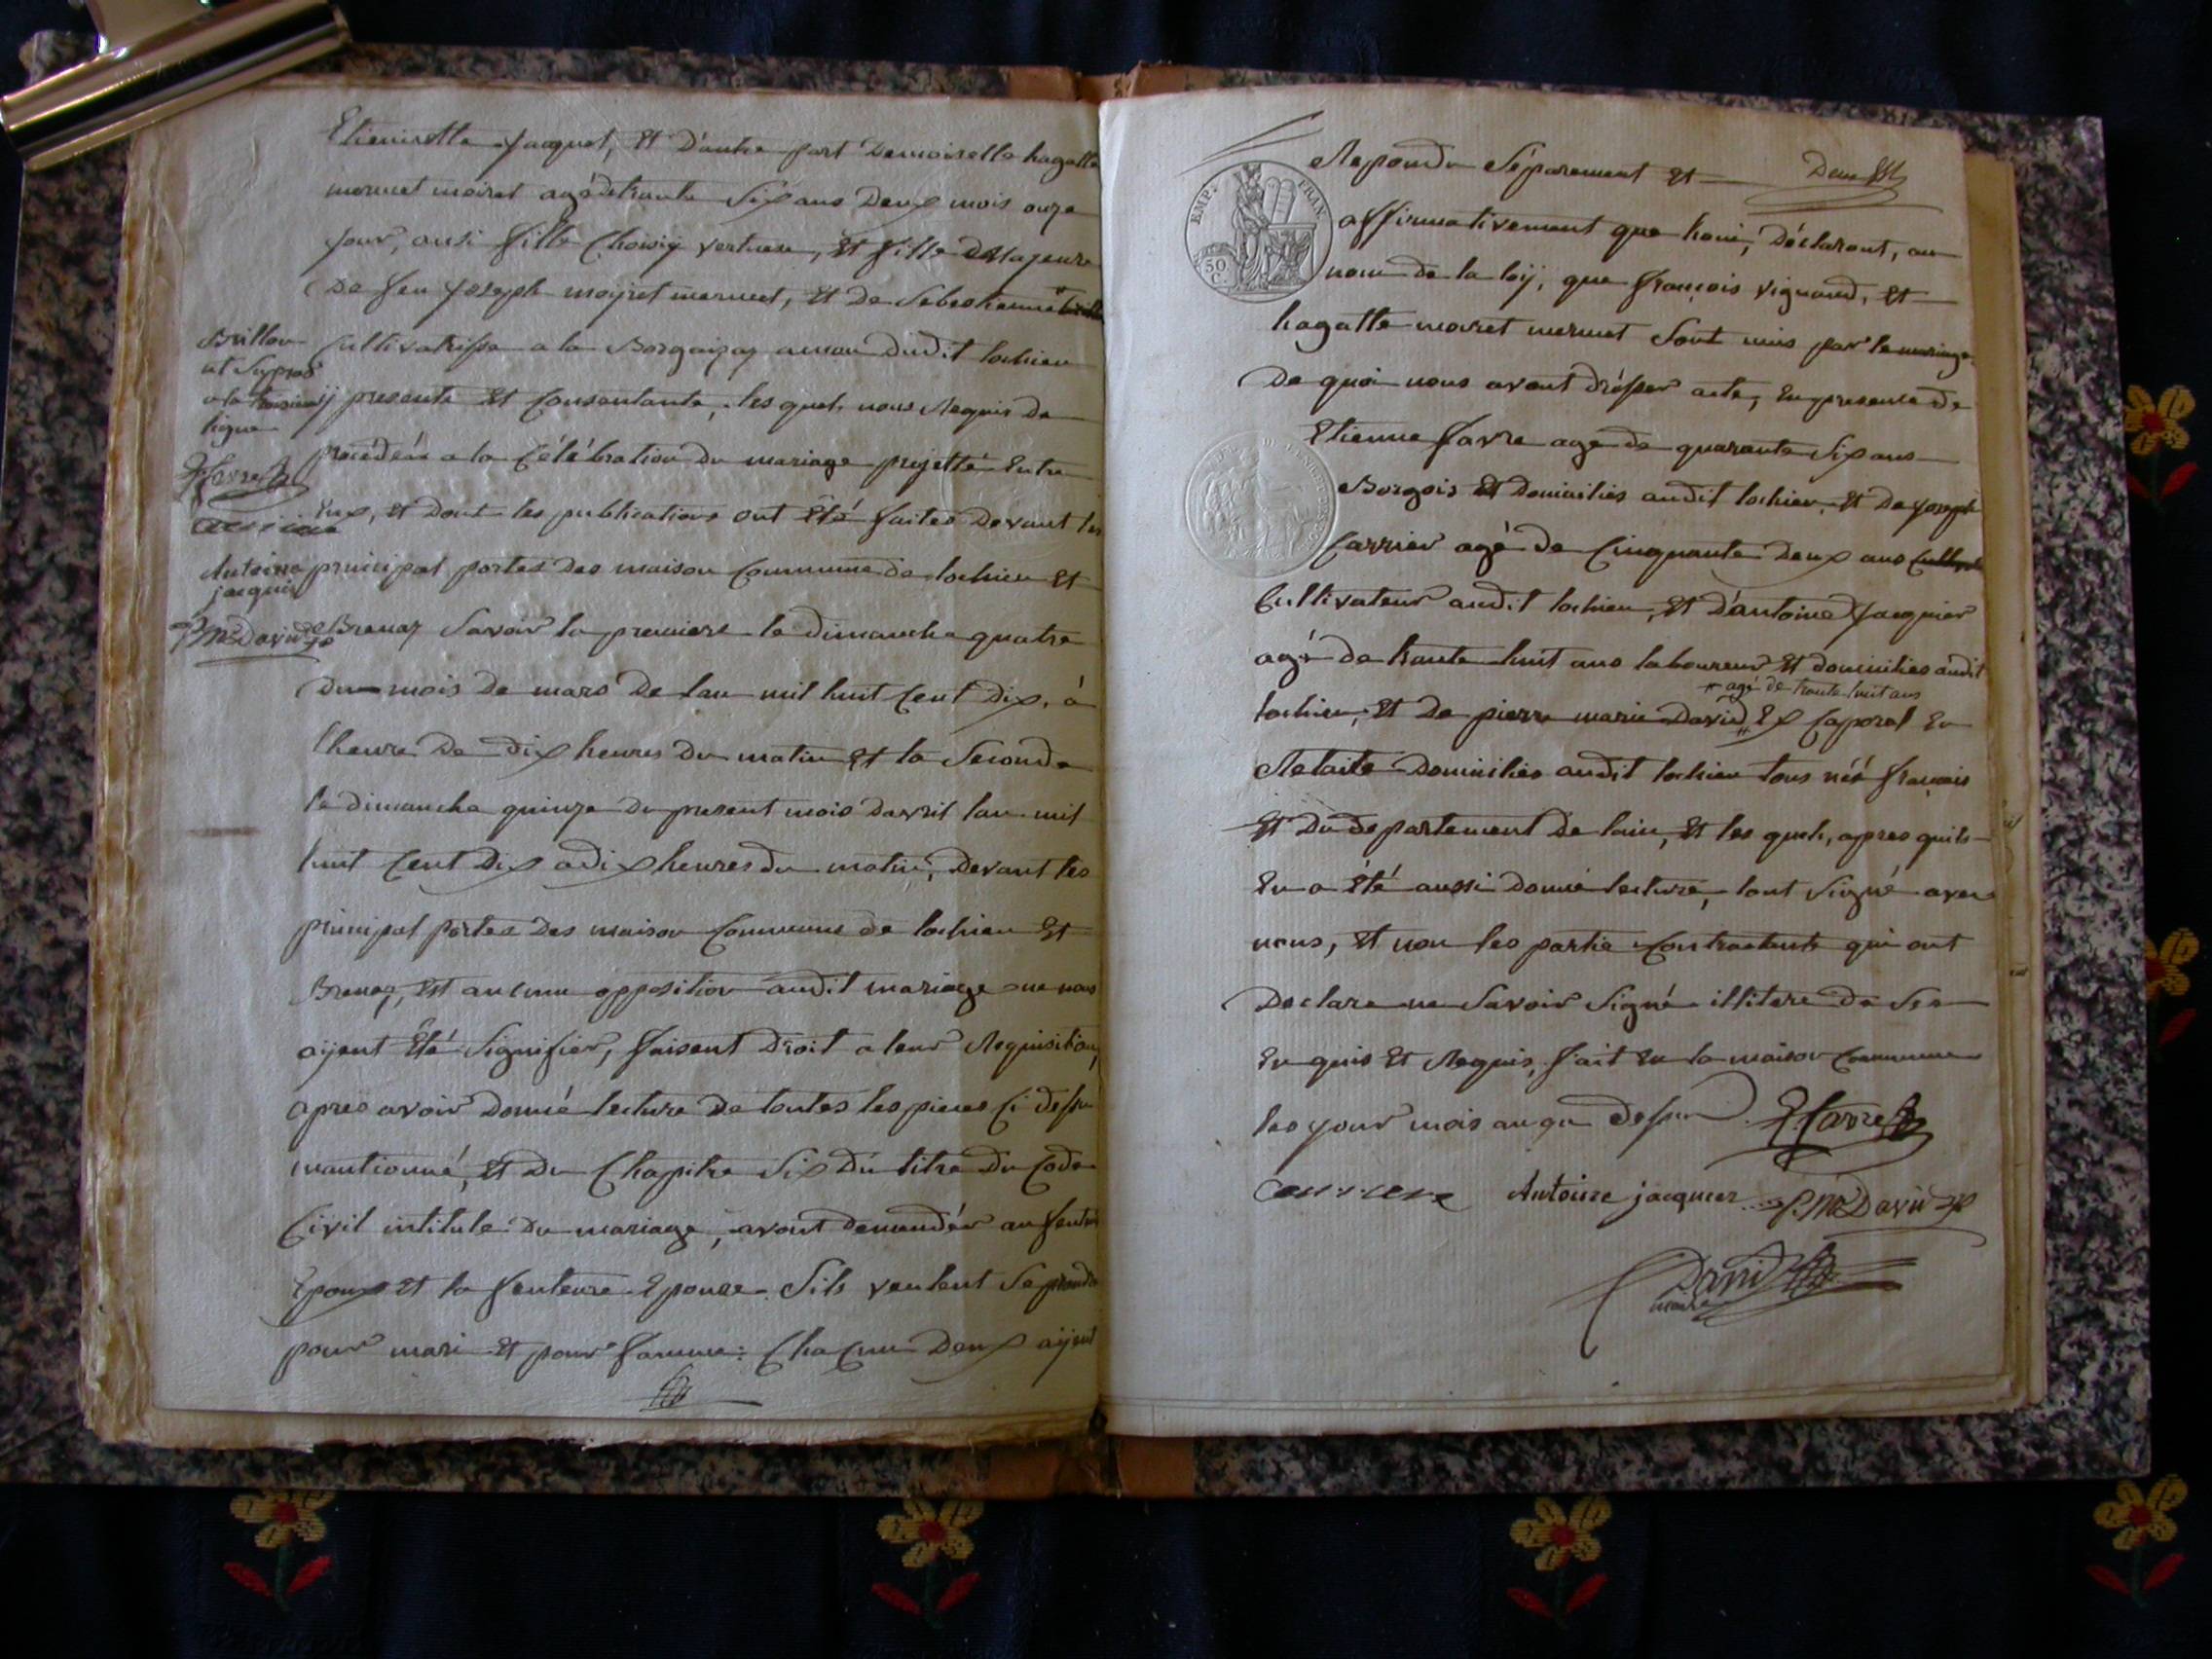 Etiennette Jacquet, Et D'autre part Demoiselle hagatte
mermet moiret agé de trante Six ans Deux mois onze
jour, ausi fille Choisiÿ vertueu, Et fille Majeure
De feu Joseph moiret mermet, Et de
Cultivatrisse a la Borgaizaz dudit lochieu
ÿ presente Et Consentante, les quels nous Requis de
procédér a la Célébration du mariage projetté Entre
Eux, Et Dont les publications ont Eté faites Devant les
principal portes Des maison Commune de lochieu Et
Brenaz Savoir la premiere le dimanche quatre
Du mois De mars De lan mil huit Cent Dix, à
lheure De dix heures Du matin Et la Seconde
le dimanche quinze Du present mois Davril lan mil
huit Cent Dix a dix heures du matin, Devant les
principal portes Des maison Commune de lochieu Et
Brenaz, Est aucune opposition audit mariage ne nous
aÿent Eté Signifier, faisent Droit a leur Requisition,
apres avoir Donné lecture De toutes les pieces Ci dessu
mantionné, Et Du Chapitre Six Du titre Du Code
Civil intitule Du mariage, avont demendér au feuture
Epoux Et la feuteure Epouse Sils veulent Se prendre
pour mari Et pour famme: Chacun Deux aÿent
Brillon
et Supros
a la troisieme
ligne
EFavre
Antoine
jacquier
PMe David
Repondu Séparement Et
EMP. FRAN.
50 C.
affirmativement que houi, Déclaront, au
nom de la loÿ, que françois vignand, Et
hagatte moiret mermet Sont unis par le mariage
De quoi nous avont drésser acte, En presence de
Etienne favre age de quarante Six ans
Borgois Et Domicilies audit lochieu, Et De Joseph
Carrier agé de Cinquante Deux ans
Cultivateur audit lochieu, Et D'antoine Jacquier
agé de trante huit ans laboureur Et domicilies audit
agé de trante huit ans
lochieu, Et De pierre marie David, Ex Caporal En
Retaite Domicilies audit lochieu tous nés français
Et Du departement De lain, Et les quels, apres quils
En a Eté aussi Donné lecture, lont Signé avec
nous, Et non les partie Contractants qui ont
Declare ne Savoir Signé illitere de Ses
En quis Et Requis, fait En la maison Commune
les jour mois an que dessus EFavre
Antoine jacquier P. Me David
David
maire